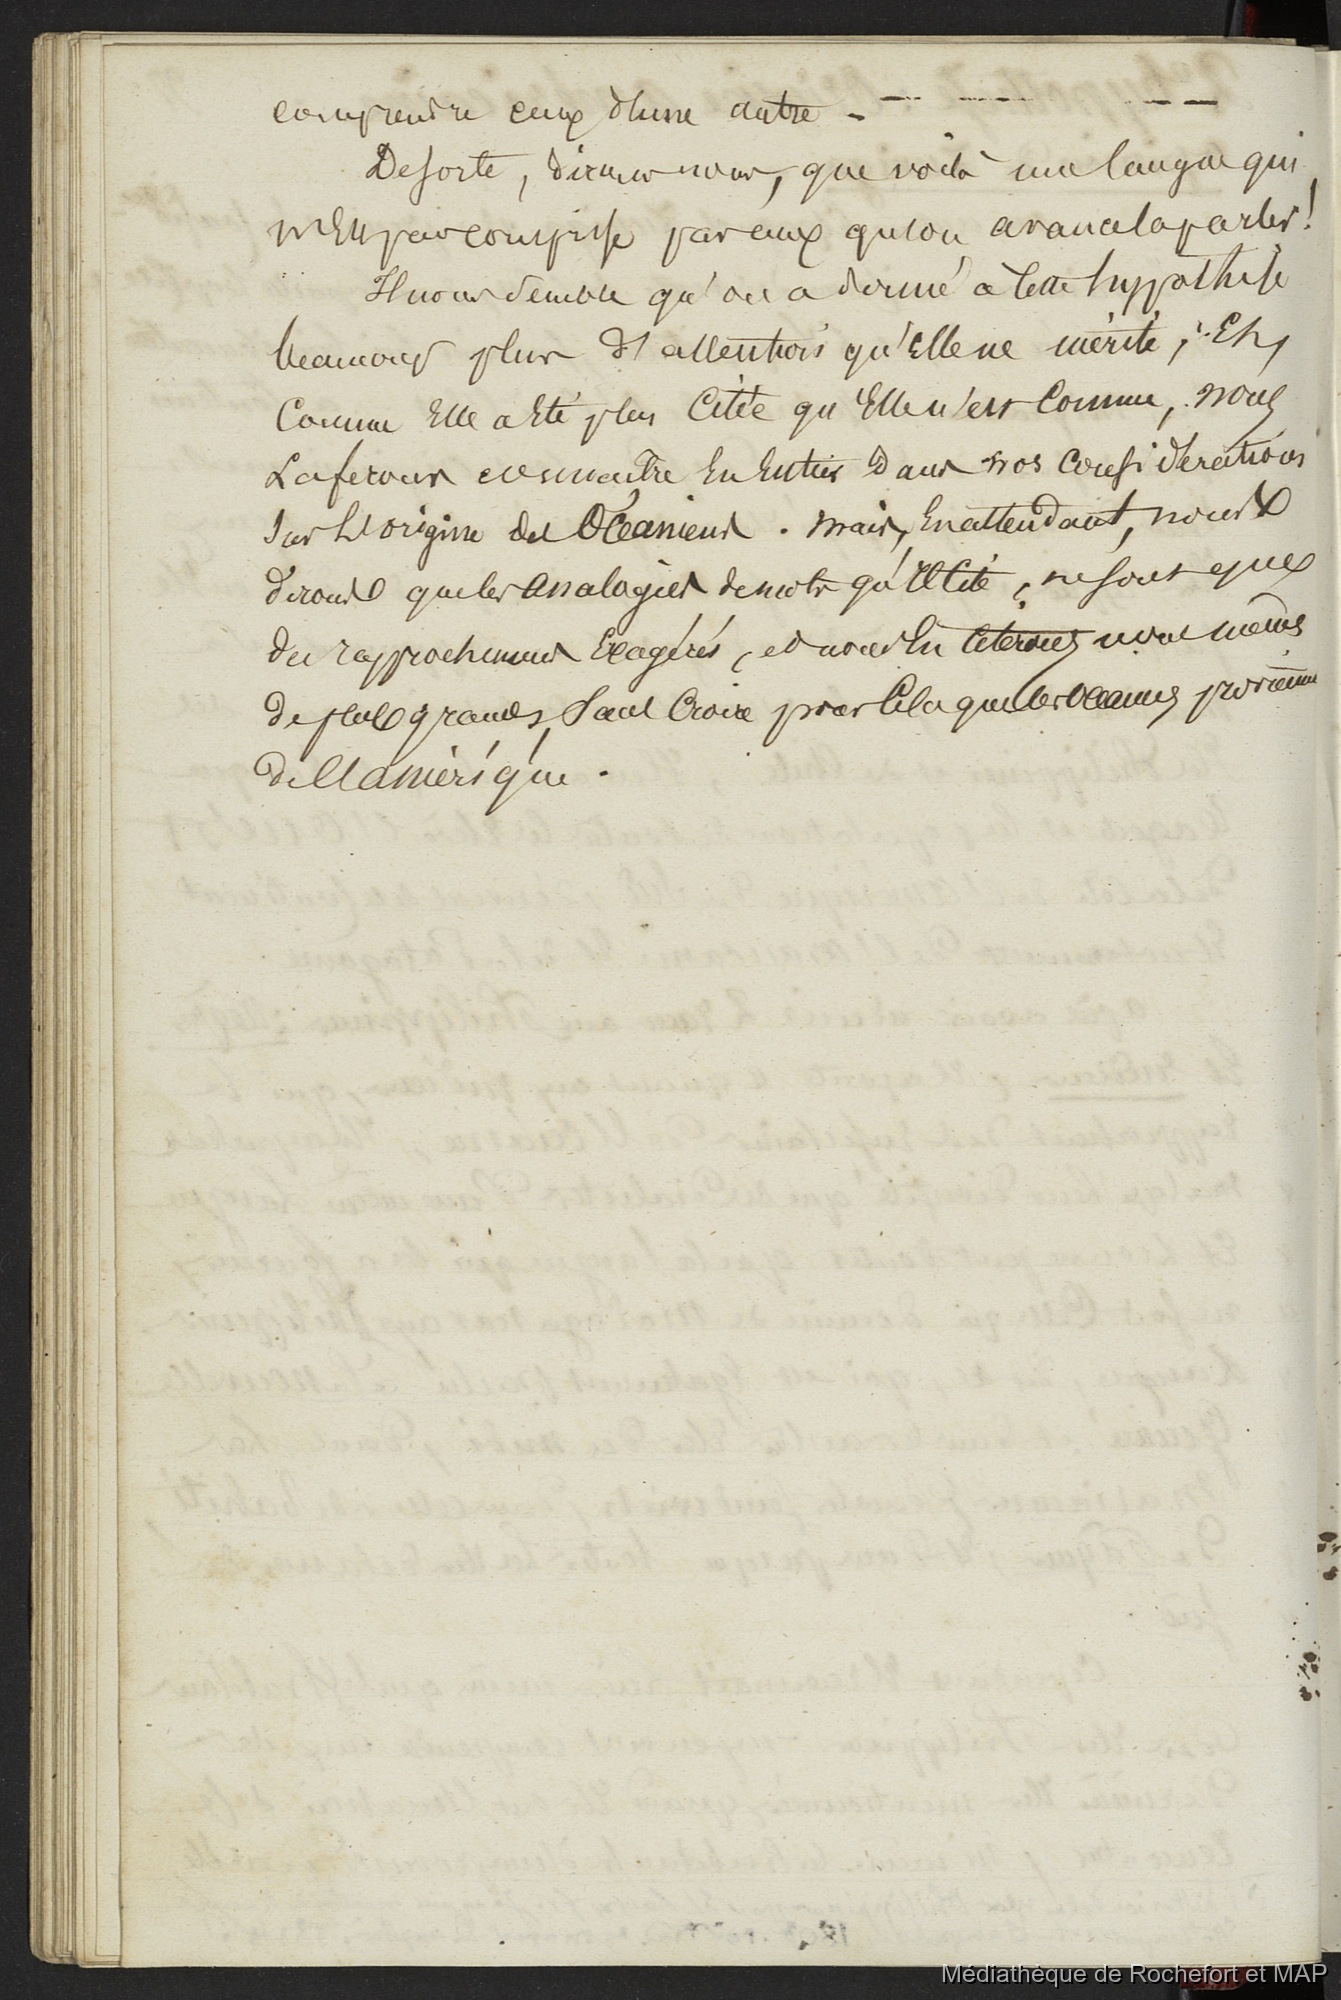 comprendre ceux d'une autre. — — — —
De sorte, dirons nous, que voilà une langue qui
n'est pas comprise par ceux qu'on avance la parler!
Il nous semble qu'on a donné à cette hypothèse
beaucoup plus d'attention qu'elle ne mérite; Et,
Comme Elle a Eté plus Citée qu'Elle n'est Connue, nous
La ferons connaître En Entier Dans nos Considérations
Sur L'origine des Océaniens. Mais, En attendant, nous
dirons que les Analogies de mots qu'Il Cite, ne sont que
des rapprochemens Exagérés, et nous En Citerons nous mêmes
de plus grands, Sans Croire pour Cela que les Océaniens proviennent
de l'amérique.
Médiathèque de Rochefort et MAP